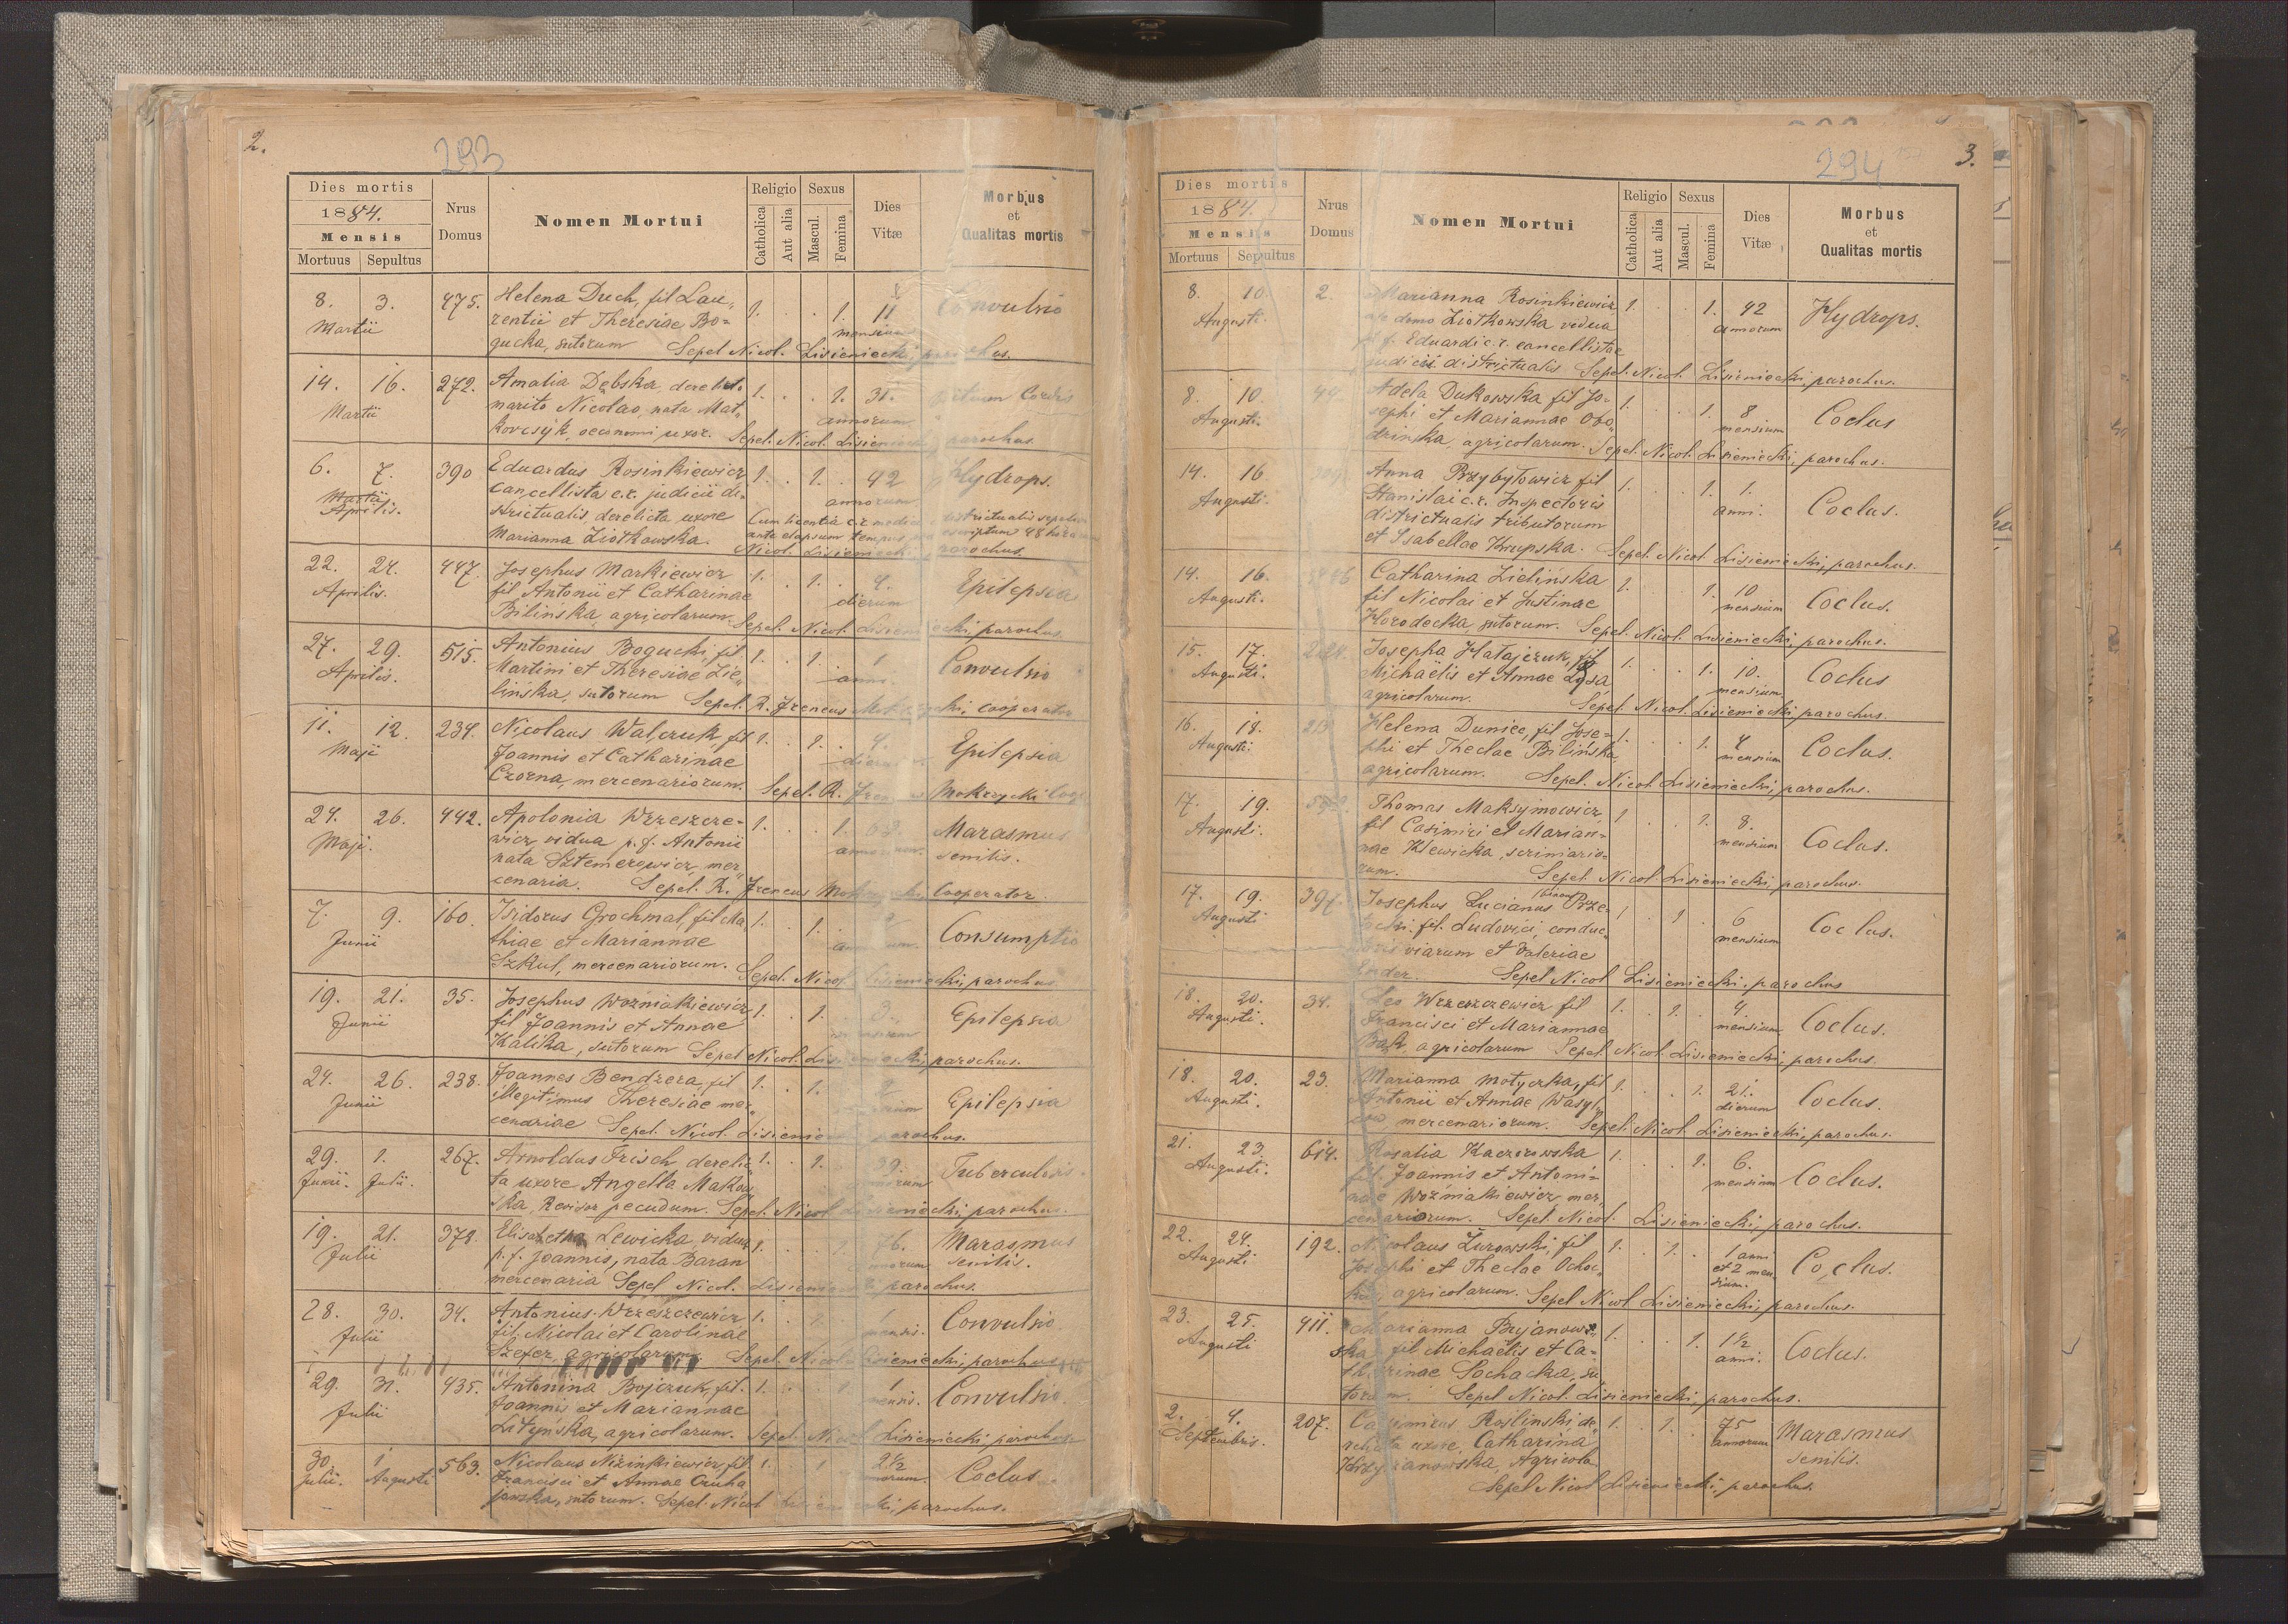 2.
293
Dies mortis
1884.
Mensis
Mortuus Sepultus
Nrus Domus
Nomen Mortui
Religio
Catholica
Aut alia
Sexus
Mascul.
Femina
Dies Vitæ
Morbus et Qualitas mortis
8. 3. 475. Helena Duch, fil Lau„ 1. . . 1. 11 Convulsio
Martii rentii et Theresiae Bo- mensium
gucka, sutorum Sepel Nicol. Lisieniecki, parochus.
14. 16. 272. Amalia Dębska, derelicto 1. . . 1. 31. Cordis
Martii marito Nicolao, nata Mat„ annorum
kovcsyk, oeconomi uxor. Sepel. Nicol. Lisieniecki, parochus.
6. 7. 390 Eduardus Rosinkiewicz 1. . 1. . 42 Hydrops.
Martii. cancellista c.r. judicii di- annorum
Aprilis. strictualis, derelicta uxore Cum licentia c.r. medici districtualis
Marianna Ziołkowska. ante elapsum tempus 48
Nicol. Lisieniecki, parochus.
22. 24. 447. Josephus Markiewicz 1. . 1. . 4. Epilepsia
Aprilis. fil Antonii et Catharinae dierum
Bilińska, agricolarum. Sepel. Nicol. Lisieniecki, parochus.
27. 29. 515. Antonius Bogucki, fil 1. . 1. . 1 Convulsio
Aprilis. Martini et Theresiae Zie„ anni.
lińska, sutorum Sepel. R. Ireneus Mokrzycki, cooperator
11. 12. 234. Nicolaus Walczuk, fil 1. . 1. . 4. Epilepsia
Maji Joannis et Catharinae
Czorna, mercenariorum. Sepel. R. Mokrzycki
24. 26. 442. Apolonia Wrzeszcze- 1. . . 1. 68. Marasmus
Maji. wicz vidua p.f. Antonii annorum. senilis.
nata Sztemerowicz, mer„
cenaria. Sepel. R. Ireneus Mokrzycki Cooperator.
7. 9. 160. Isidorus Grochmal, fil Ma„ 1. . 1. . Consumptio
Junii thiae et Mariannae
Szkul, mercenariorum. Sepel. Nicol. Lisieniecki, parochus
19. 21. 35. Josephus Wozniakiewicz 1. . 1. . 3. Epilepsia
Junii fil Joannis et Annae
Kalika, sutorum Sepel Nicol. Lisieniecki, parochus.
24. 26. 238. Joannes Bendzera, fil 1. . 1. . 2 Epilepsia
Junii illegitimus Theresiae mer„
cenariae Sepel. Nicol. Lisieniecki parochus.
29. 1. 267. Arnoldus Frisch derelic„ 1. . 1. . 39. Tuberculosis.
Junii. Julii. ta uxore Angella Makow„
ska, Revisor pecudum. Sepel. Nicol Lisieniecki, parochus.
19. 21. 378. Elisabetha Lewicka, vidua 1. . . 1. 76. Marasmus
Julii p.f. Joannis, nata Baran annorum senilis.
mercenaria Sepel Nicol. Lisieniecki parochus.
28. 30. 34. Antonius Wrzeszczewicz 1. . 1. . 1 Convulsio
Julii fil. Nicolai et Carolinae mensis.
Szefer, agricolarum. Sepel. Nicol. Lisieniecki, parochus
29. 31. 435. Antonina Bojczuk, fil. 1. . . 1. 1 Convulsio
Julii Joannis et Mariannae mensis.
Lityńska, agricolarum. Sepel. Nicol Lisieniecki parochus
30. 1 563. Nicolaus Nizinkiewicz fil. 1. . 1 . 2½ Coclus
Julii. Augusti Francisci et Annae
sutorum. Sepel. Nicol Lisieniecki, parochus.
294
3.
Dies mortis
1884.
Mensis
Mortuus Sepultus
Nrus Domus
Nomen Mortui
Religio
Catholica
Aut alia
Sexus
Mascul.
Femina
Dies Vitæ
Morbus et Qualitas mortis
8. 10. 2. Marianna Rosinkiewicz 1. . . 1. 42 Hydrops.
Augusti. domo Ziołkowska vidua annorum
p.f. Eduardi c.r. cancellistae
judicii districtualis Sepel. Nicol. Lisieniecki, parochus.
8. 10. Adela Dukowska fil Jo- 1. . . 1. 8 Coclus
Augusti. sephi et Mariannae Obo„ mensium
dzinska, agricolarum. Sepel. Nicol. Lisieniecki, parochus.
14. 16 Anna Przybyłowicz fil 1. . . 1. 1. Coclus.
Augusti. Stanislai c.r. Inspectoris anni.
districtualis tributorum
et Isabellae Krupska. Sepel. Nicol Lisieniecki, parochus.
14. 16. Catharina Zielińska 1. . . 1. 10 Coclus.
Augusti. fil Nicolai et Justinae mensium
Horodecka, sutorum. Sepel. Nicol. Lisieniecki, parochus.
15. 17. Josepha Hatajczuk, fil 1. . . 1. 10. Coclus
Augusti. Michaëlis et Annae Łysa mensium
agricolarum. Sepel. Nicol. Lisieniecki parochus.
16. 18. Helena Duniec, fil Jose- 1. . . 1. 4 Coclus.
Augusti. phi et Theclae Bilińska mensium
agricolarum. Sepel. Nicol. Lisieniecki, parochus.
17. 19. Thomas Maksymowicz 1 . . 1. 8. Coclus.
Augusti. fil Casimiri et Marian- mensium
nae Klewicka, scriniario-
rum. Sepel Nicol. Lisieniecki, parochus.
17. 19. 397. Josephus Lucianus Prze- 1 . 1 . 6 Coclus.
Augusti fil. Ludovici, conduc„ mensium
viarum et Valeriae
Ender. Sepel Nicol Lisieniecki. parochus
18. 20. 34. Leo Wrzeszczewicz fil 1. . 1. . 4. Coclus.
Augusti. Francisci et Mariannae mensium
Bąk, agricolarum Sepel Nicol. Lisieniecki, parochus.
18. 20. 23. Marianna Motyczka, fil 1. . . 1. 21. Coclus.
Augusti. Antonii et Annae Wasyl„ dierum
mercenariorum. Sepel. Nicol Lisieniecki, parochus.
21. 23. 614. Rosalia Kaczorowska 1. . . 1. 6. Coclus.
Augusti. fil. Joannis et Antoni- mensium
nae Woźniakiewicz mer„
cenariorum. Sepel Nicol. Lisieniecki, parochus.
22. 24. 192. Nicolaus Żurowski, fil 1. . 1. . 1 anni Coclus.
Augusti Josephi et Theclae Ochoc„ et 2 men„
agricolarum. sium. Sepel Nicol Lisieniecki, parochus.
23. 25. 411. Marianna Bryjanow„ 1. . . 1. 1½ Coclus.
Augusti ska fil Michaëlis et Ca- anni.
tharinae Sochacka, su
torum. Sepel Nicol. Lisieniecki, parochus.
2. 4. 207. Casimirus Roslinski, de„ 1. . 1. . 75 Marasmus
Septembris. relicta uxore, Catharina annorum senilis.
Krzyżanowska, Agricola
Sepel Nicol Lisieniecki, parochus.